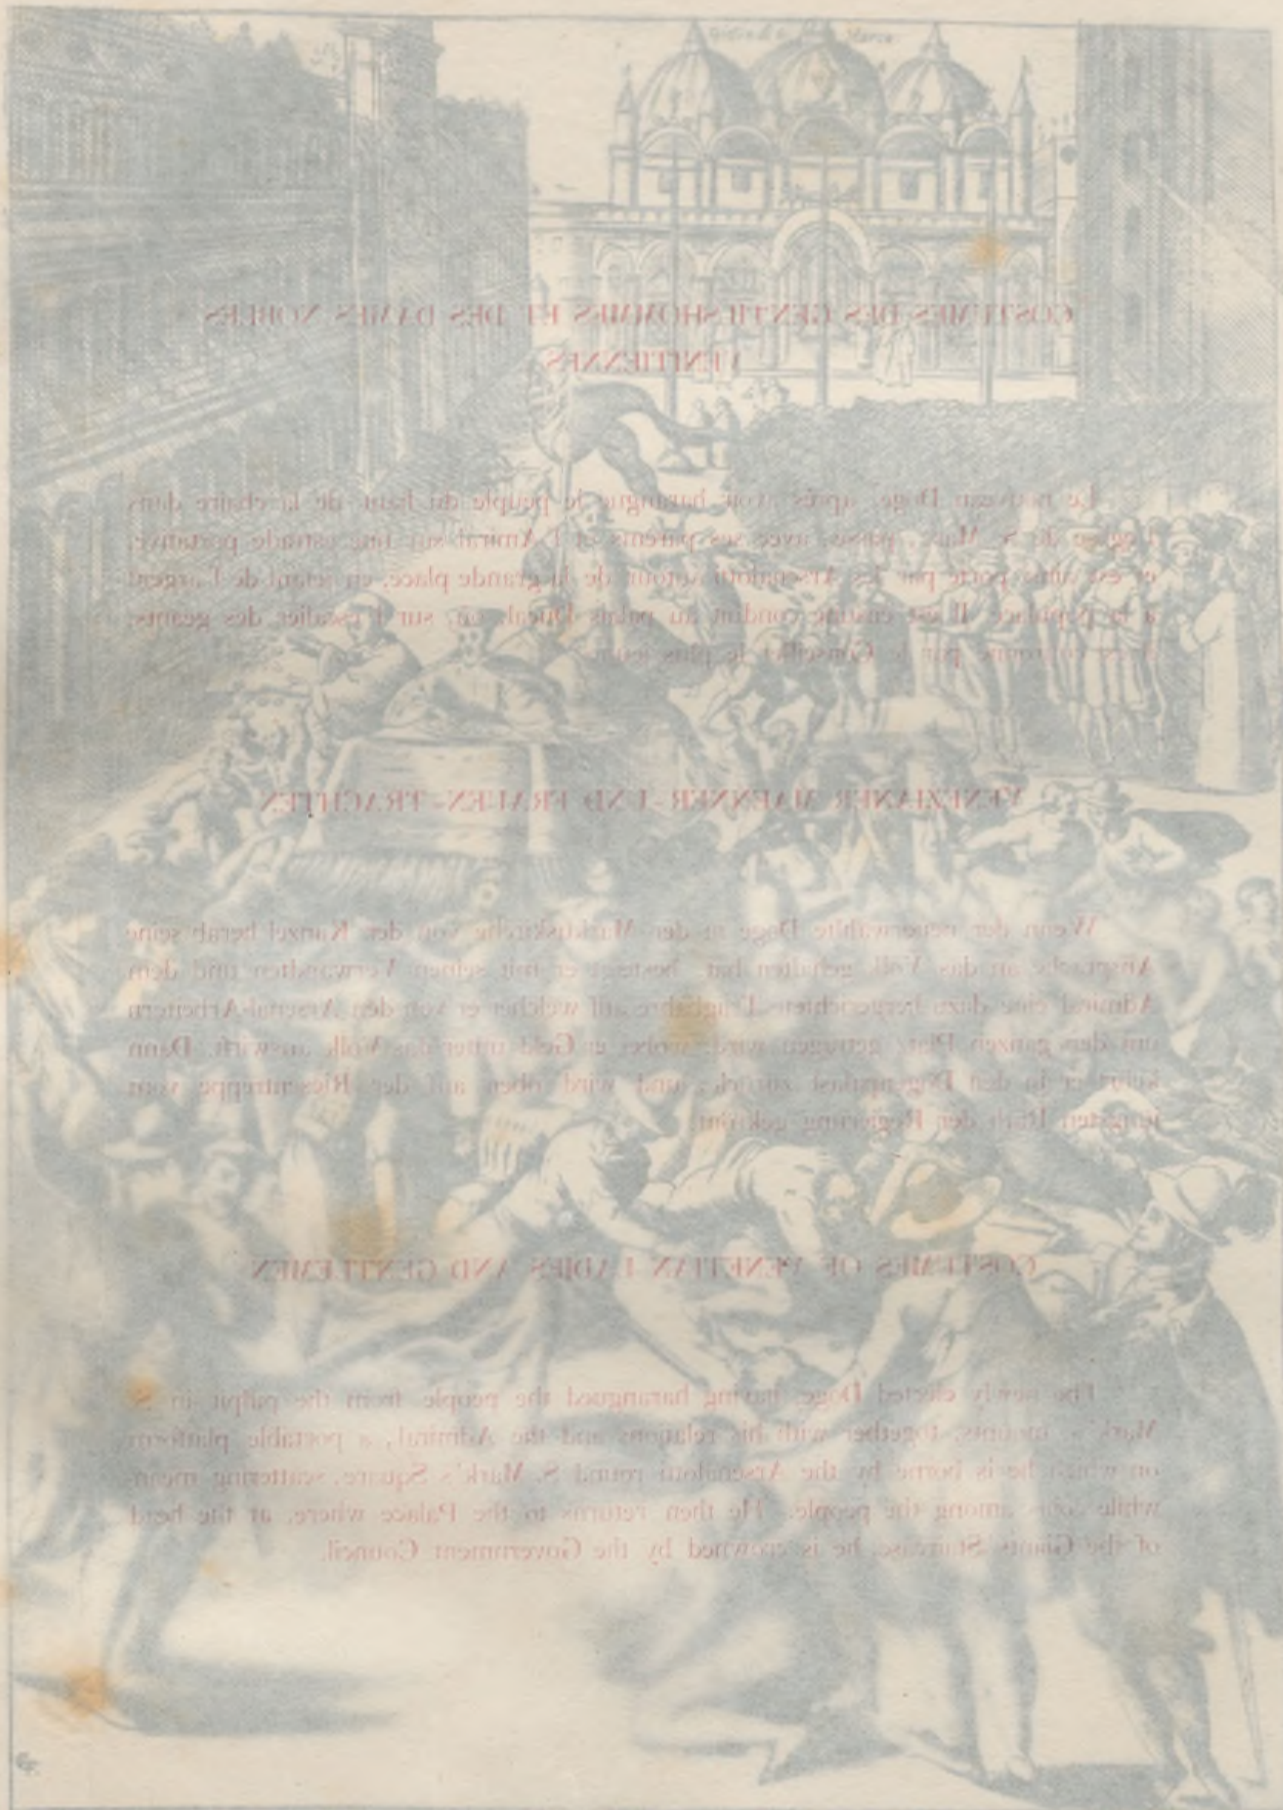 Chiesa di San Marco
COSTUMES DES GENTILSHOMMES ET DES DAMES NOBLES
VENITIENNES
Le nouveau Doge, après avoir harangué le peuple du haut de la chaire dans
l'église de S. Marc, passe, avec ses parents et l'Amiral sur une estrade portative,
et est ainsi porté par les Arsenalotti autour de la grande place, en jetant de l'argent
à la populace. Il est ensuite conduit au palais Ducal, où, sur l'escalier des géants,
il est couronné par le Conseiller le plus jeune.
VENEZIANER MAENNER-UND FRAUEN-TRACHTEN
Wenn der neuerwählte Doge in der Markuskirche von der Kanzel herab seine
Ansprache an das Volk gehalten hat, besteigt er mit seinen Verwandten und dem
Admiral eine dazu hergerichtete Tragbahre auf welcher er von den Arsenal-Arbeitern
um den ganzen Platz getragen wird, wobei er Geld unter das Volk auswirft. Dann
kehrt er in den Dogenpalast zurück, und wird oben auf der Riesentreppe vom
jüngsten Rath der Regierung gekrönt.
COSTUMES OF VENETIAN LADIES AND GENTLEMEN
The newly elected Doge, having harangued the people from the pulpit in S.
Mark's, mounts, together with his relations and the Admiral, a portable platform
on which he is borne by the Arsenalotti round S. Mark's Square, scattering mean-
while coins among the people. He then returns to the Palace where, at the head
of the Giants Staircase, he is crowned by the Government Council.